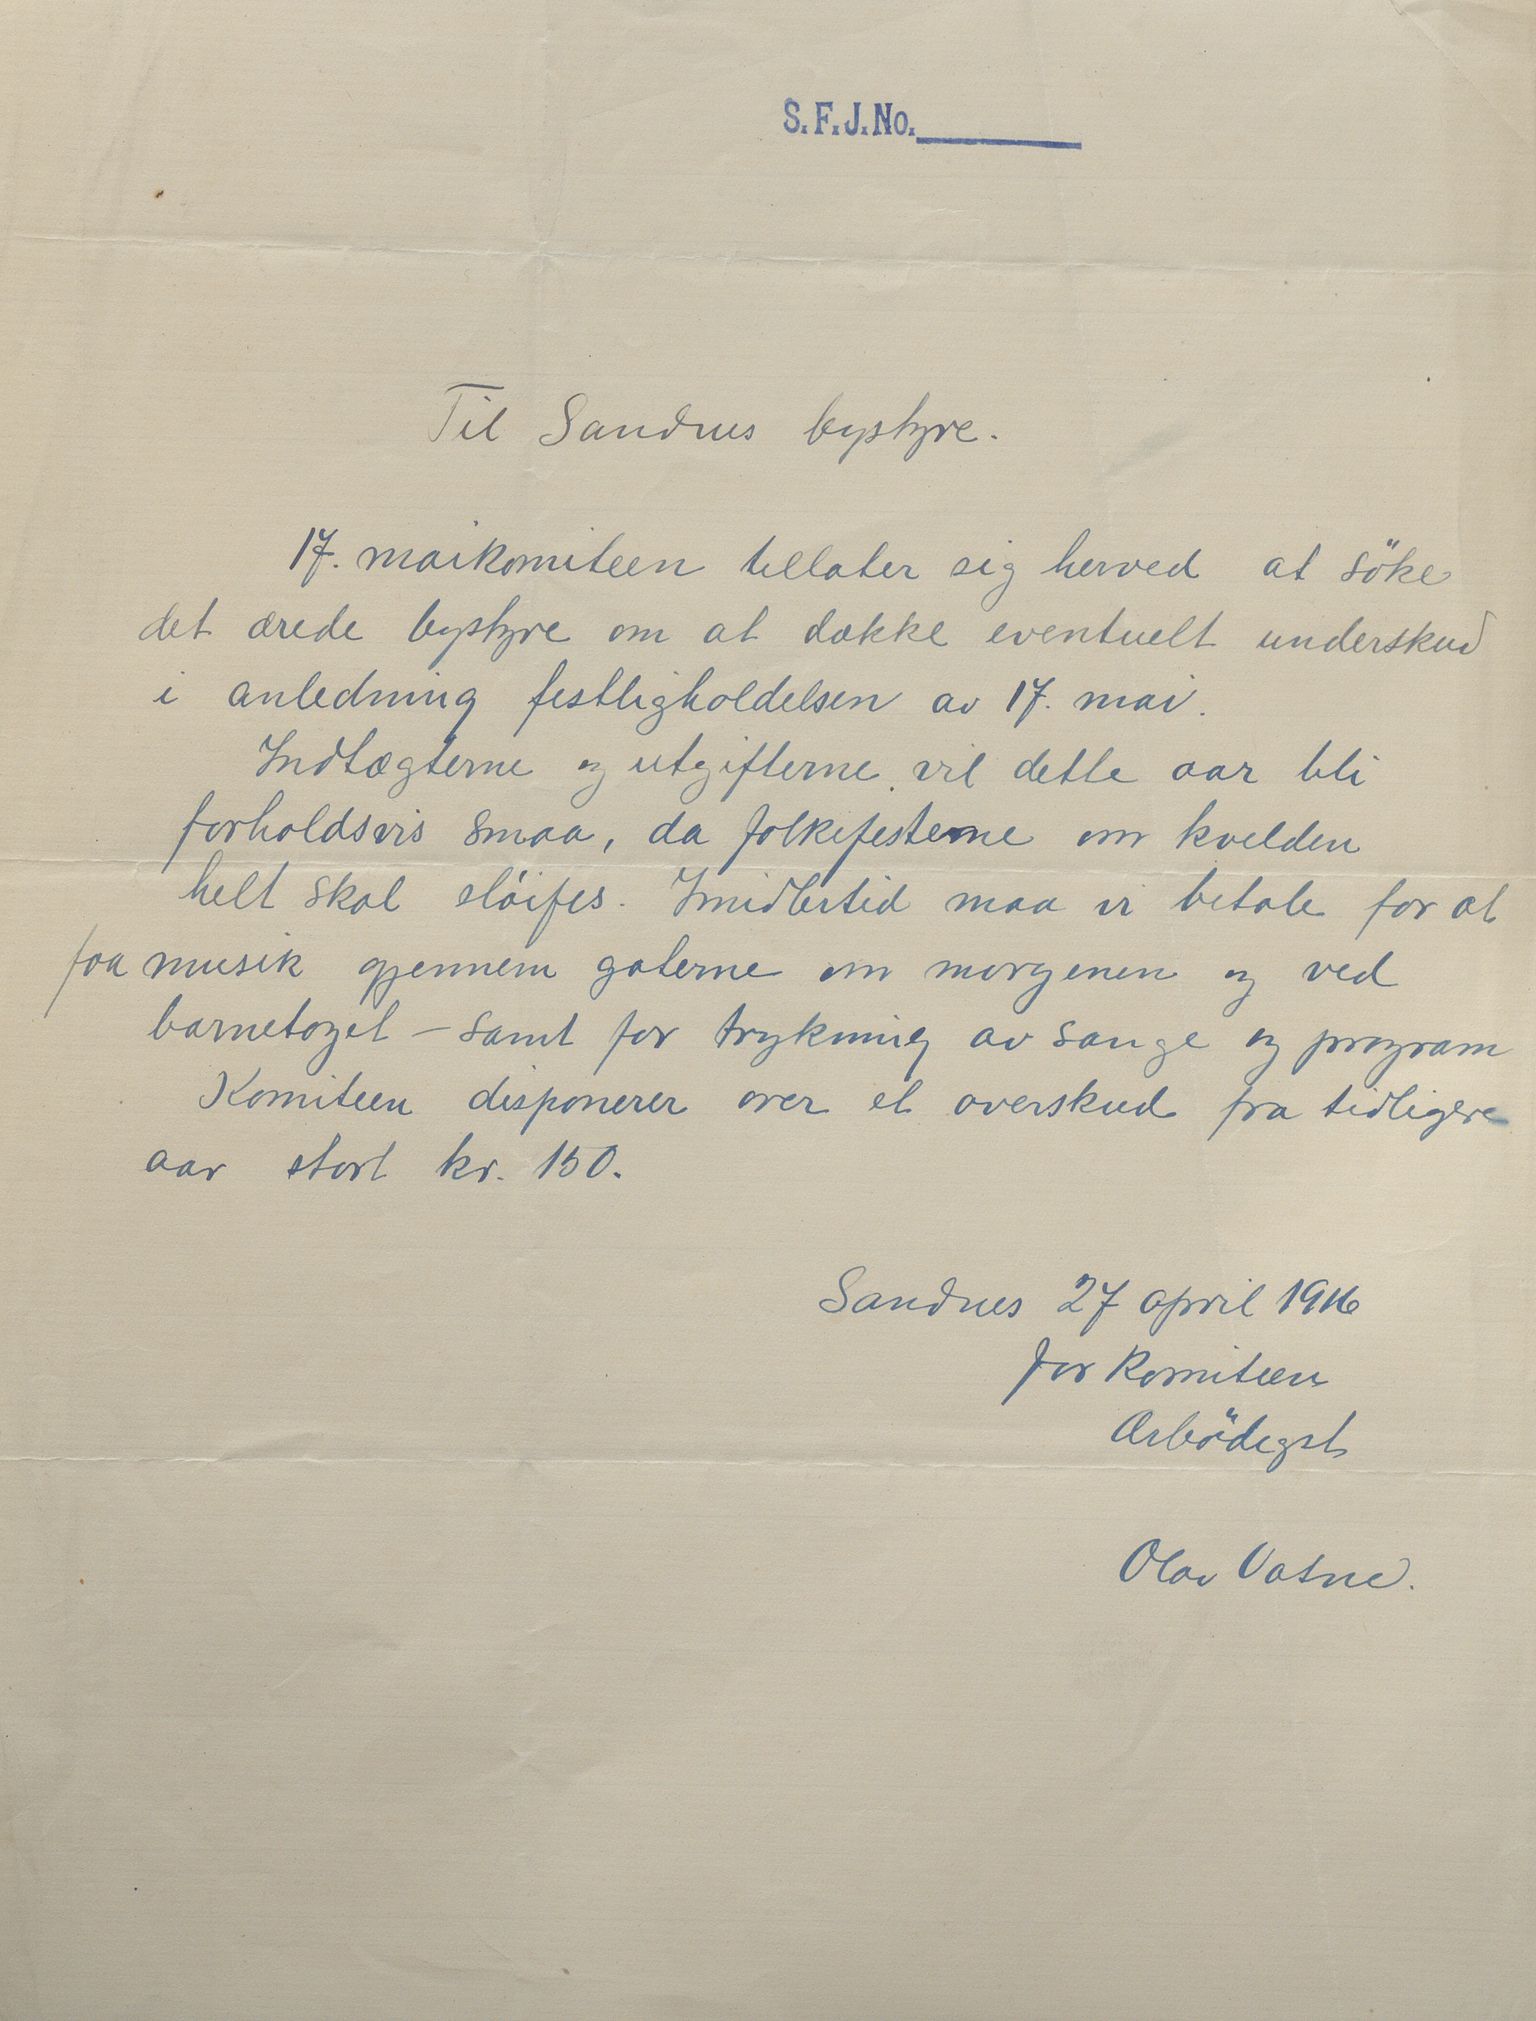 S.F.J.No.
Til Sandnes bystyre.
17. maikomiteen tillater sig herved at söke
det ærede bystyre om at dække eventuelt underskud
i anledning festligholdelsen av 17. mai.
Indtægterne og utgifterne vil dette aar bli
forholdsvis smaa, da folkefesterne om kvelden
helt skal slöifes. Imidlertid maa vi betale for at
faa musik gjennem gaterne om morgenen og ved
barnetoget – samt for trykning av sange og program
Komiteen disponerer over et overskud fra tidligere
aar stort kr. 150.
Sandnes 27 april 1916
for komiteen
Ærbödigst
Olav Vatne.